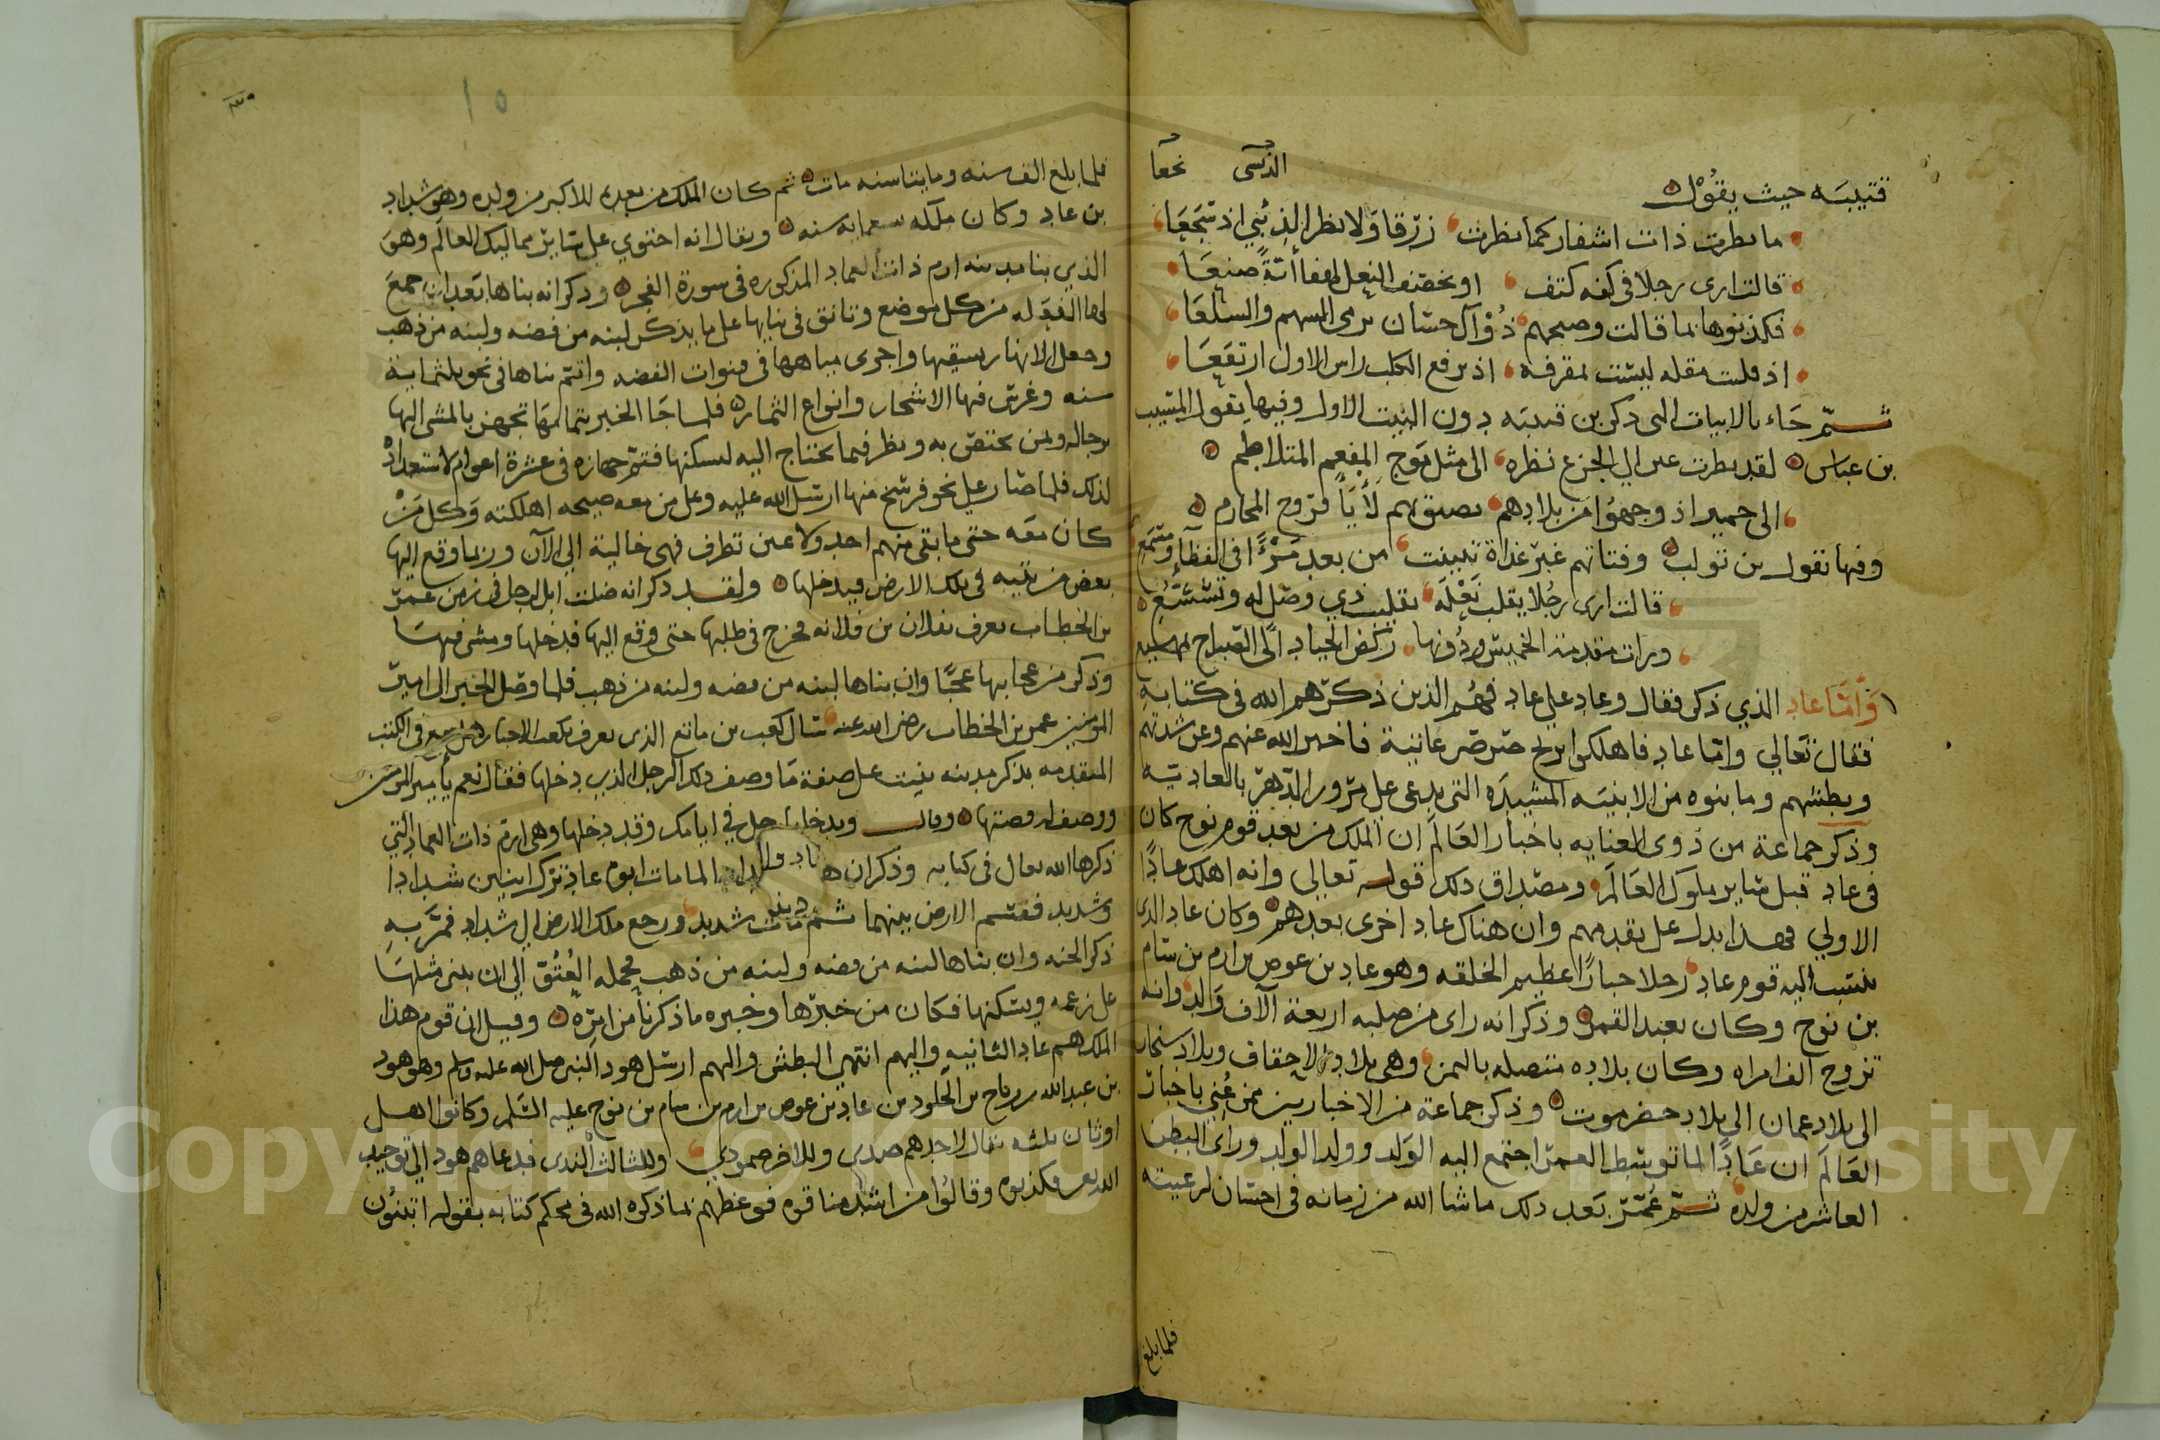 الذئبي نجعا
قتيبه حيث يقول
ما نظرت ذات اشفار كما نظرت زرقا ولا نظر الذئبي اذ سجعا
قالت ارى رجلا في كفه كتف او يخصف النعل لهفا أتةً صنعا
فكذبوها بما قالت وصبحهم ذو آل حسان يزجي السهم والسلعا
اذ قلبت مقله ليست بمقرفة اذ يرفع الكلب راس الاول ارتفعا
ثم جاء بالابيات التي ذكر بن قتيبه دون البيت الاول وفيها يقول المسيب
بن عباس لقد نظرت عين الى الجزع نظره الى مثل موج المفعم المتلاطم
الى حمير اذ وجهوا من بلادهم تضيق بهم لأيًا فروج المخارم
وفيها يقول بن تولب وفتاتهم غبر غداة تبينت من بعد مرءًا في الفضآ ومسمع
قالت ارى رجلا يقلب نعله تقليب ذي وصل له وتشسع
ورات مقدمة الخميس ودونها ركض الجياد الى الصباح
وأمّا عاد الذي ذكر فقال وعاد على عاد فهم الذين ذكرهم الله في كتابه
فقال تعالى وامّا عاد فاهلكوا بريح صرصر عاتية فاخبر الله عنهم وعن شدتهم
وبطشهم وما بنوه من الابنيه المشيده التي تدعى على مرور الدهر بالعاديه
وذكر جماعة من ذوي العنايه باخبار العالم ان الملك من بعد قوم نوح كان
في عاد قبل سآير ملوك العالم ومصداق ذلك قوله تعالى وانه اهلك عادًا
الاولى فهذا يدل على تقدمهم وان هناك عاد اخرى بعدهم وكان عاد الذي
ينتسب اليه قوم عاد رجلا جبارًا عظيم الخلقه وهو عاد بن عوص بن ارم بن سام
بن نوح وكان يعبد القمر وذكر انه راى من صلبه اربعة آلاف ولد وانه
تزوج الف امراه وكان بلاده متصله باليمن وهي بلاد الاحقاف وبلاد سنحار
الى بلاد عمان الى بلاد حضرموت وذكر جماعة من الاخباريين ممن عُني باخبار
العالم ان عادًا لما توسط العمر اجتمع اليه الولد وولد الولد وراى البطن
العاشر من ولده ثم عُمّر بعد ذلك ما شا الله من زمانه في احسان لرعيته
فلما بلغ
٣٠
١٥
فلما بلغ الف سنه ومايتا سنه مات ثم كان الملك من بعده للاكبر من ولده وهو شداد
بن عاد وكان ملكه سبعمايه سنه ويقال انه احتوى على سآير ممالك العالم وهو
الذي بنا مدينه ارم ذات العماد المذكوره في سورة الفجر وذكر انه بناها بعد ان جمع
لها الفعله من كل موضع وتانق في بنايها على ما يذكر لبنه من فضه ولبنه من ذهب
وجعل الانهار يسقيها واجرى مياهها في قنوات الفضه واتم بناها في نحو ثلثماية
سنه وغرس فيها الاشجار وانواع الثمار فلما جا الخبر بتمامها تجهز بالمشي اليها
برجاله ومن يختص به ونظر فيما يحتاج اليه لسكنها فتم جهازه في عشرة اعوام لاستعداد
لذلك فلما صار على نحو فرسخ منها ارسل الله عليه وعلى من معه صيحه اهلكته وكل من
كان معه حتى ما بقي منهم احد ولا عين تطرف فهي خالية الى الآن وربما وقع اليها
بعض من يتيه في تلك الارض فيدخلها ولقد ذكر انه ضلت ابل لرجل في زمن عمر
بن الخطاب يعرف بفلان بن فلانه فخرج في طلبها حتى وقع اليها فدخلها ومشى فيها
وذكر من عجايبها عجبًا وان بناها لبنه من فضه ولبنه من ذهب فلما وصل الخبر الى امير
المومنين عمر بن الخطاب رضي الله عنه سال كعب بن ماتع الذي يعرف بكعب الاحبار هل سمع في الكتب
المتقدمه بذكر مدينه بنيت على صفة ما وصف ذلك الرجل الذي دخلها فقال نعم يا امير المومنين
ووصف له قصتها وقال ويدخلها رجل في ايامك وقد دخلها وهي ارم ذات العماد التي
ذكرها الله تعالى في كتابه وذكر ان عاد لما مات ابوه عاد ترك ابنين شدادا
وشديد فقسم الارض بينهما ثم مات شديد ورجع ملك الارض الى شداد فمر به
ذكر الجنه وان بناها لبنه من فضه ولبنه من ذهب فحمله العُتُوّ الى ان بنى مثلها
على زعمه ويسكنها فكان من خبرها وخبره ما ذكرنا من امره وقيل ان قوم هذا
الملك هم عاد الثانيه واليهم انتهى البطش واليهم ارسل هود النبي صلى الله عليه وسلم وهو هود
بن عبد الله بن رباح بن الخلود بن عاد بن عوص بن ارم بن سام بن نوح عليه السلم وكانوا اهل
اوثان ثلثه يقال لاحدهم صدى وللاخر صمودي وللثالث الندى فدعاهم هود الى توحيد
الله عز وجل فكذبوه وقالوا من اشد منا قوه فوعظهم بما ذكره الله في محكم كتابه بقوله اتبنون